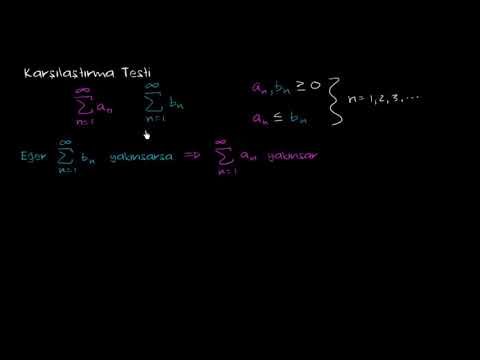 Karşılaştırma Testi
∞ ∑ n=1 aₙ   ∞ ∑ n=1 bₙ   aₙ, bₙ ≥ 0   aₙ ≤ bₙ } n=1,2,3,...
Eğer ∞ ∑ n=1 bₙ yakınsarsa ⇒ ∞ ∑ n=1 aₙ yakınsar